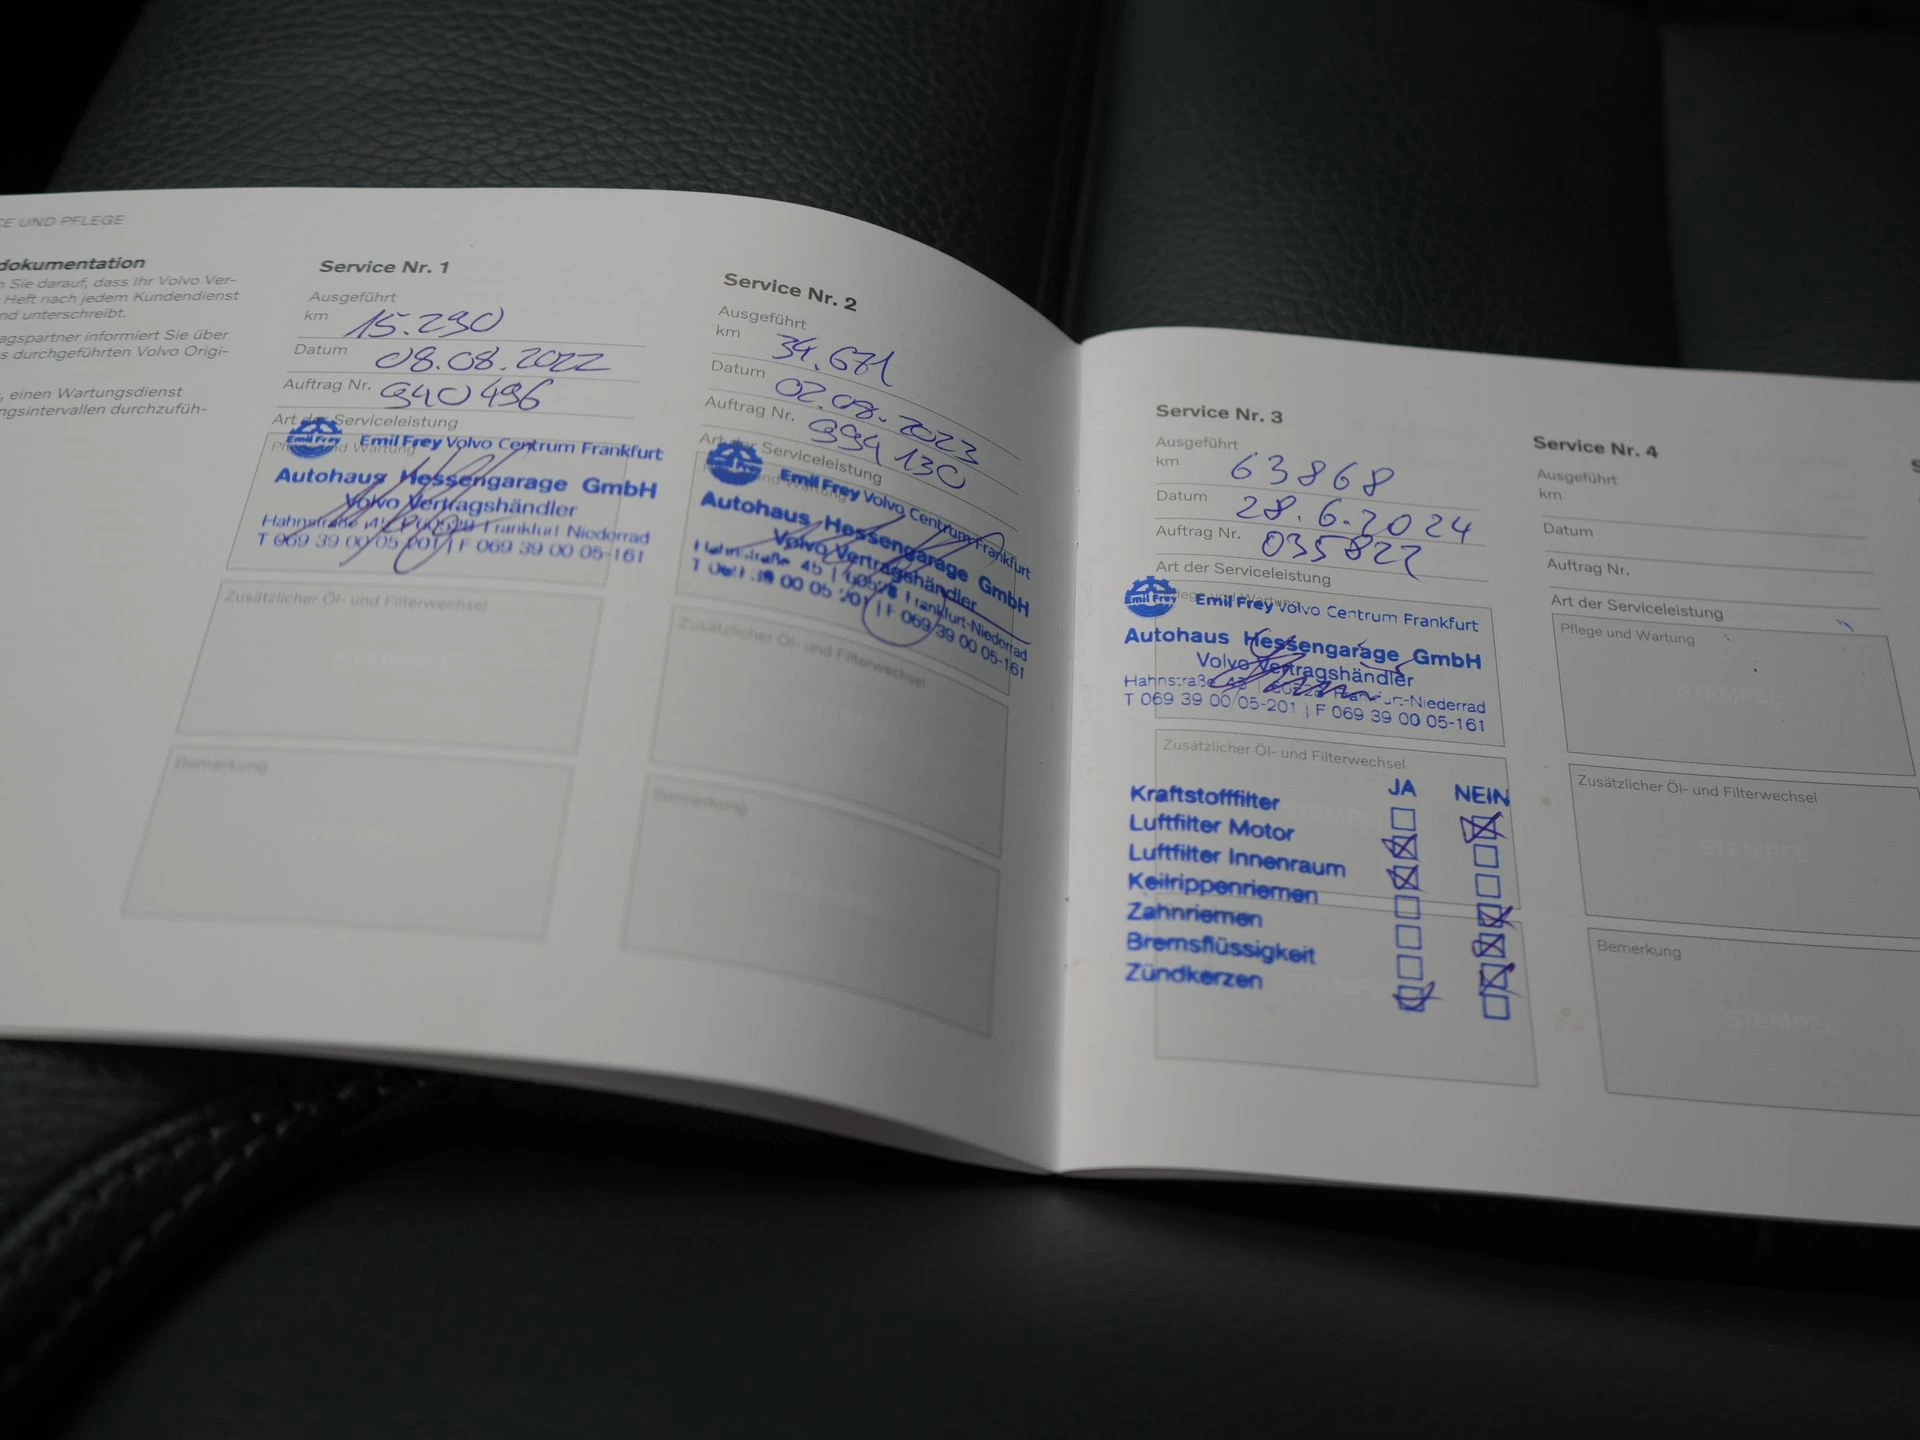 CE UND PFLEGE
dokumentation
n Sie darauf, dass Ihr Volvo Ver-
Heft nach jedem Kundendienst
nd unterschreibt.
agspartner informiert Sie über
s durchgeführten Volvo Origi-
, einen Wartungsdienst
ngsintervallen durchzufüh-
Service Nr. 1
Ausgeführt
km 15.290
Datum 08.08.2022
Auftrag Nr. 940496
Art der Serviceleistung
Pflege und Wartung
Emil Frey Emil Frey Volvo Centrum Frankfurt
Autohaus Hessengarage GmbH
Volvo Vertragshändler
Hahnstraße 45 | 60528 Frankfurt Niederrad
T 069 39 00 05 201 | F 069 39 00 05-161
Zusätzlicher Öl- und Filterwechsel
STEMPEL
Bemerkung
Service Nr. 2
Ausgeführt
km 34.671
Datum 02.08.2023
Auftrag Nr. 994130
Art der Serviceleistung
und Wartung
Emil Frey Emil Frey Volvo Centrum Frankfurt
Autohaus Hessengarage GmbH
Volvo Vertragshändler
Hahnstraße 45 | 60528 Frankfurt-Niederrad
T 069 39 00 05 201 | F 069 39 00 05-161
Zusätzlicher Öl- und Filterwechsel
Bemerkung
Service Nr. 3
Ausgeführt
km 63868
Datum 28.6.2024
Auftrag Nr. 035822
Art der Serviceleistung
Pflege und Wartung
Emil Frey Emil Frey Volvo Centrum Frankfurt
Autohaus Hessengarage GmbH
Volvo Vertragshändler
Hahnstraße 45 | 60528 Frankfurt-Niederrad
T 069 39 00 05-201 | F 069 39 00 05-161
Zusätzlicher Öl- und Filterwechsel
JA NEIN
Kraftstofffilter
STEMPEL
Luftfilter Motor
Luftfilter Innenraum
Keilrippenriemen
Zahnriemen
Bremsflüssigkeit
Zündkerzen
STEMPEL
Service Nr. 4
Ausgeführt
km
Datum
Auftrag Nr.
Art der Serviceleistung
Pflege und Wartung
STEMPEL
Zusätzlicher Öl- und Filterwechsel
STEMPEL
Bemerkung
STEMPEL
S